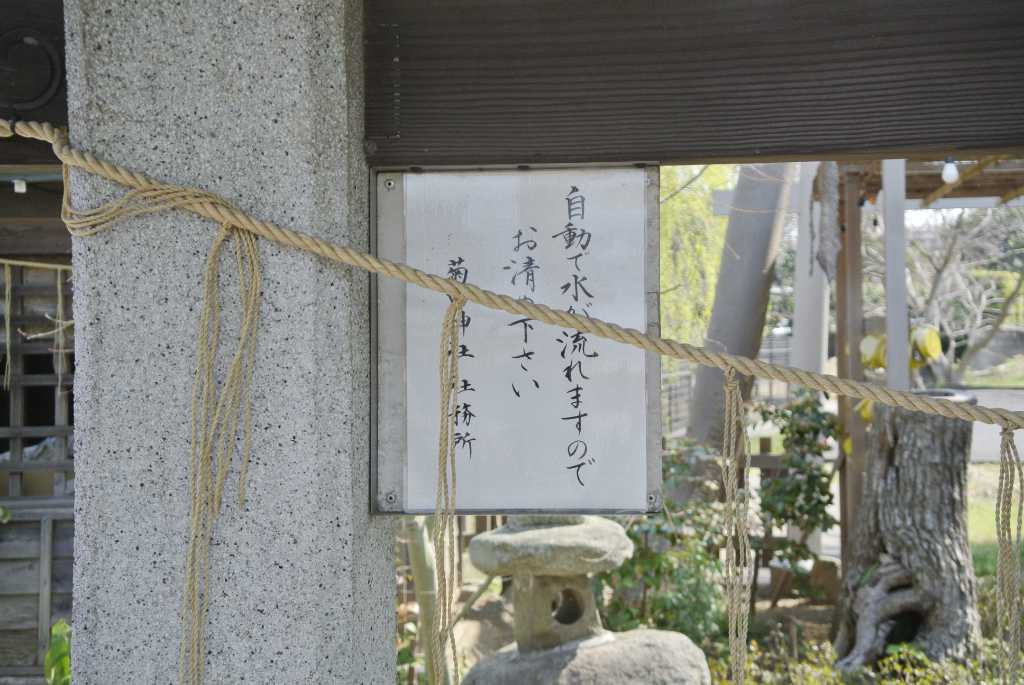 自動で水が流れますので
お清め下さい
菊神社社務所